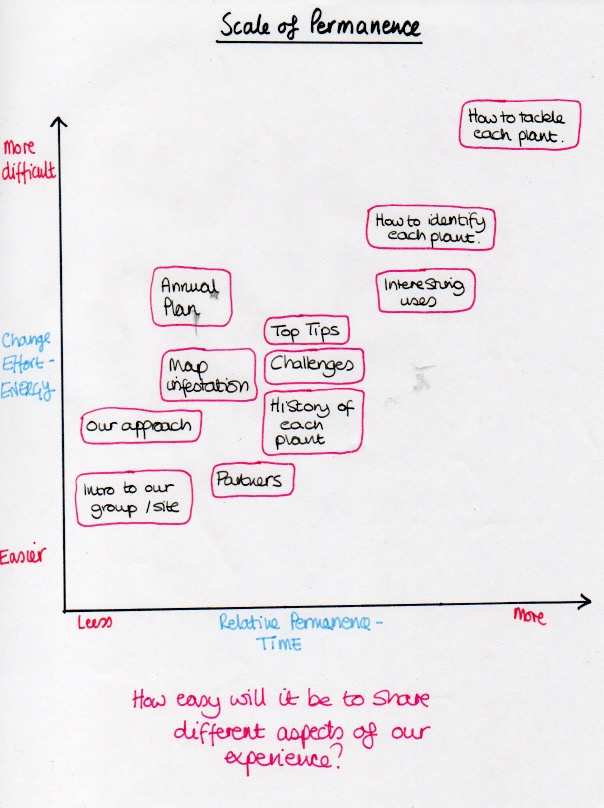 Scale of Permanence
How to tackle
each plant.
More
difficult
How to identify
each plant.
Annual
Plan
Interesting
uses
Top Tips
Change
Effort -
ENERGY
Map
infestation
Challenges
History of
each
plant
Our approach
Partners
Intro to our
group / site
Easier
Less
Relative Permanence -
TIME
More
How easy will it be to share
different aspects of our
experience?